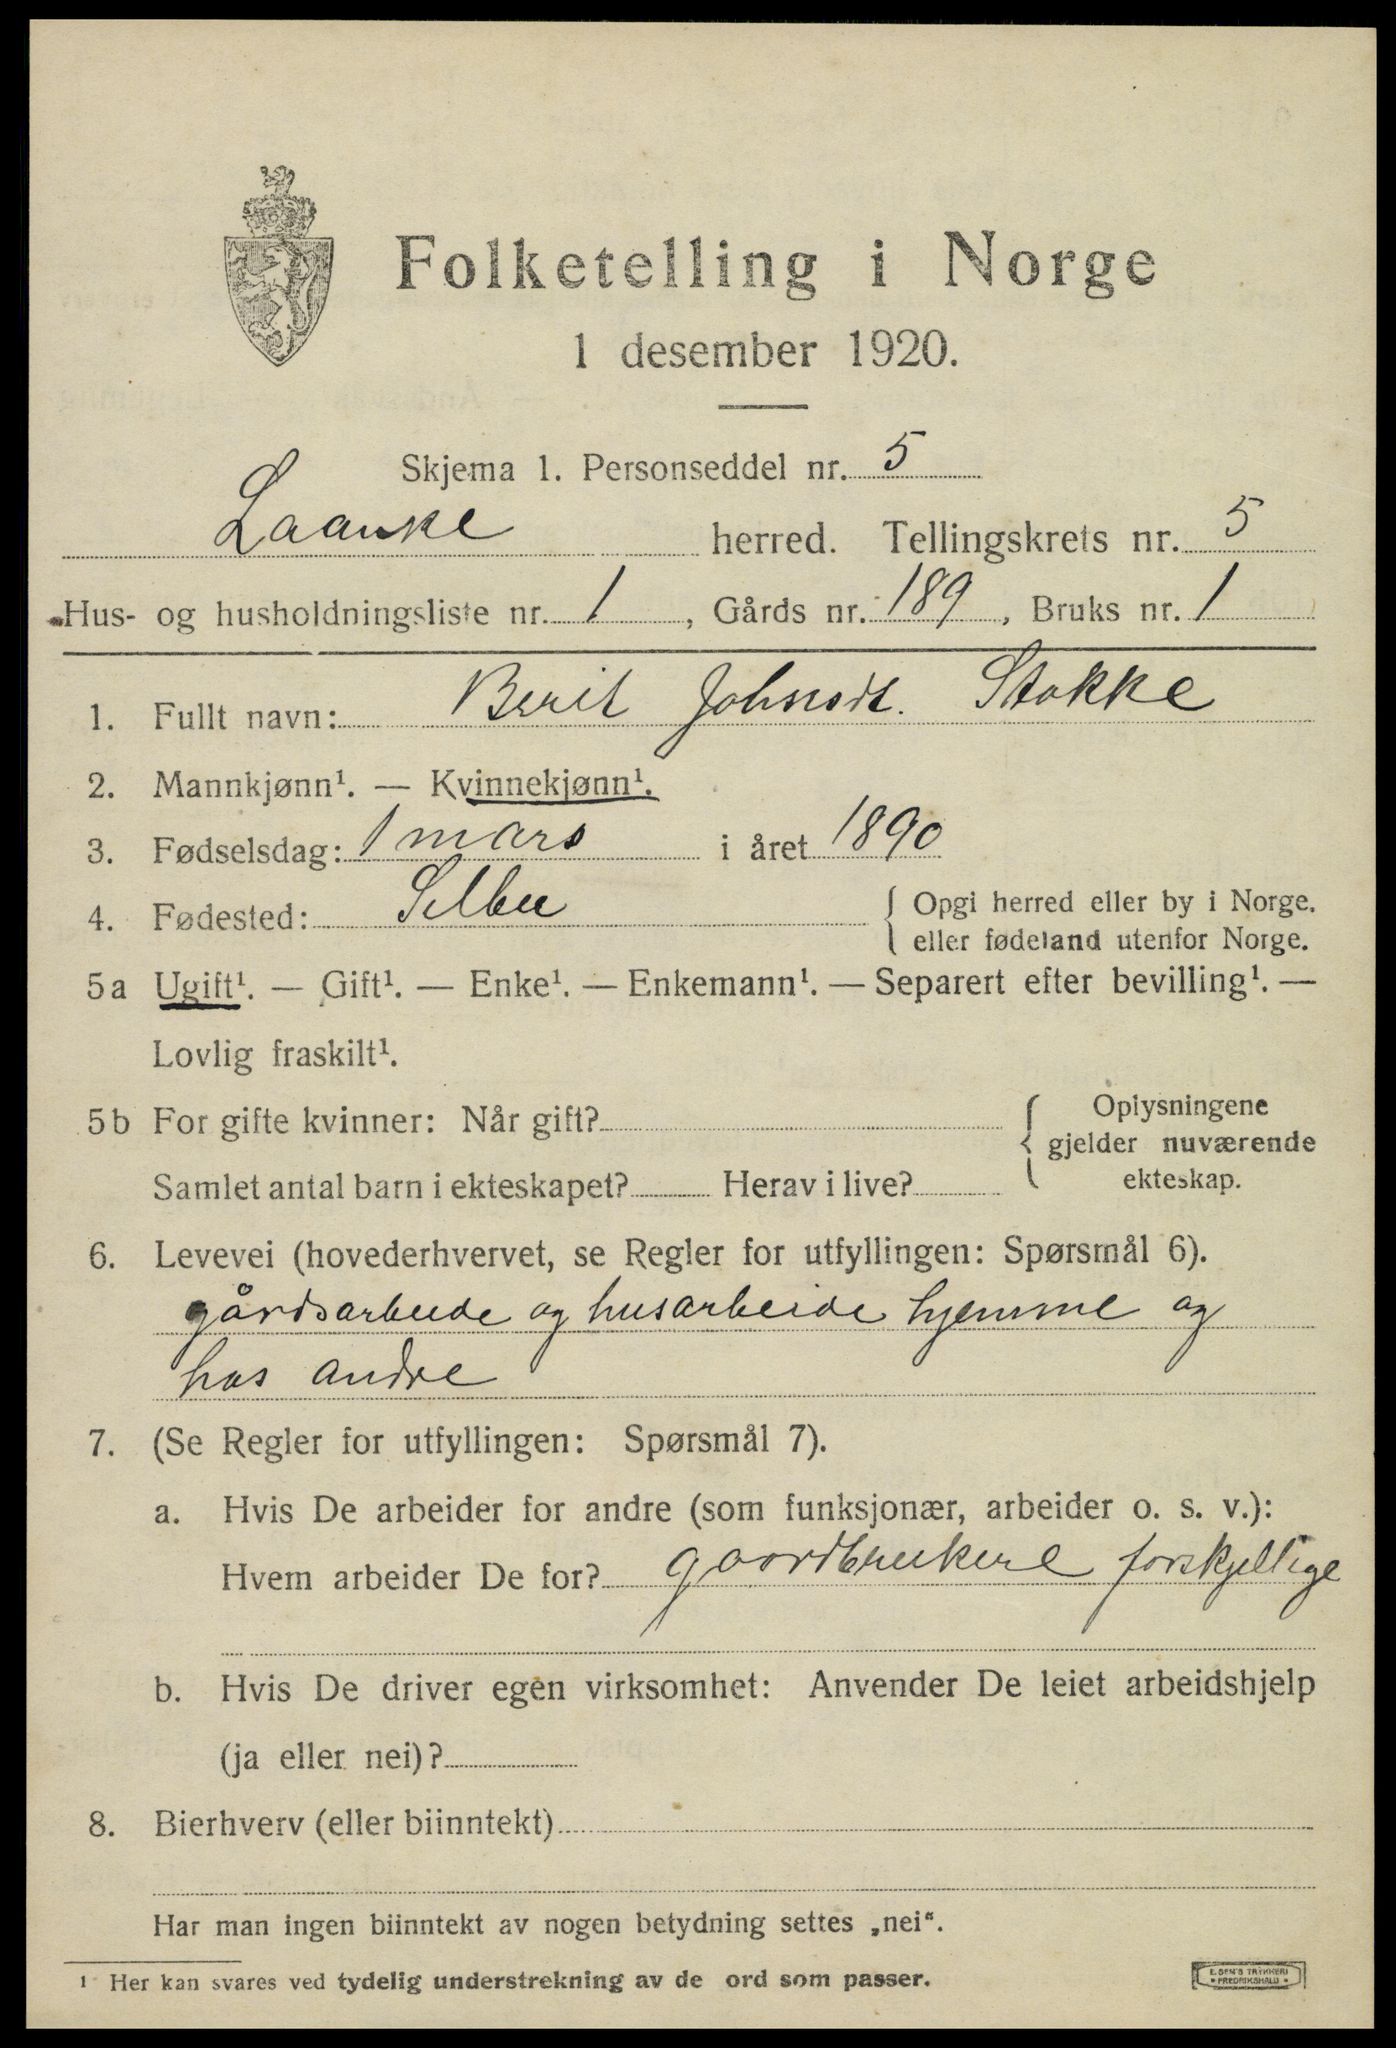 Folketelling i Norge
1 desember 1920.
Skjema 1. Personseddel nr. 5
Laanke herred. Tellingskrets nr. 5
Hus- og husholdningsliste nr. 1, Gårds nr. 189, Bruks nr. 1
1. Fullt navn: Berit Johnsdt. Stokke
2. Mannkjønn¹. — Kvinnekjønn¹.
3. Fødselsdag: 1 mars i året 1890
4. Fødested: Selbu { Opgi herred eller by i Norge,
eller fødeland utenfor Norge.
5a Ugift¹. — Gift¹. — Enke¹. — Enkemann¹. — Separert efter bevilling¹. —
Lovlig fraskilt¹.
5b For gifte kvinner: Når gift? { Oplysningene
gjelder nuværende
ekteskap.
Samlet antal barn i ekteskapet? Herav i live?
6. Levevei (hovederhvervet, se Regler for utfyllingen: Spørsmål 6).
gårdsarbeide og husarbeide hjemme og
hos andre
7. (Se Regler for utfyllingen: Spørsmål 7).
a. Hvis De arbeider for andre (som funksjonær, arbeider o. s. v.):
Hvem arbeider De for? gaardbrukere forskjellige
b. Hvis De driver egen virksomhet: Anvender De leiet arbeidshjelp
(ja eller nei)?
8. Bierhverv (eller biinntekt)
Har man ingen biinntekt av nogen betydning settes „nei“.
¹ Her kan svares ved tydelig understrekning av de ord som passer.
E. SEM'S TRYKKERI
FREDRIKSHALD